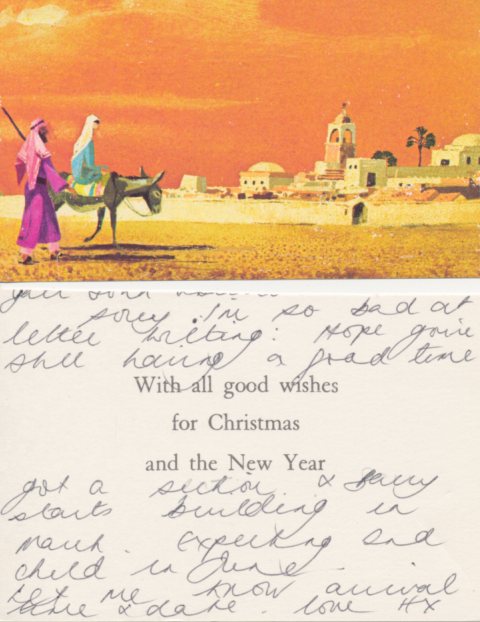 sorry I'm so bad at
letter writing. Hope you're
still having a good time
With all good wishes
for Christmas
and the New Year
got a section &
starts building in
March. Expecting 2nd
child in June.
Let me know arrival
time & date. love HX